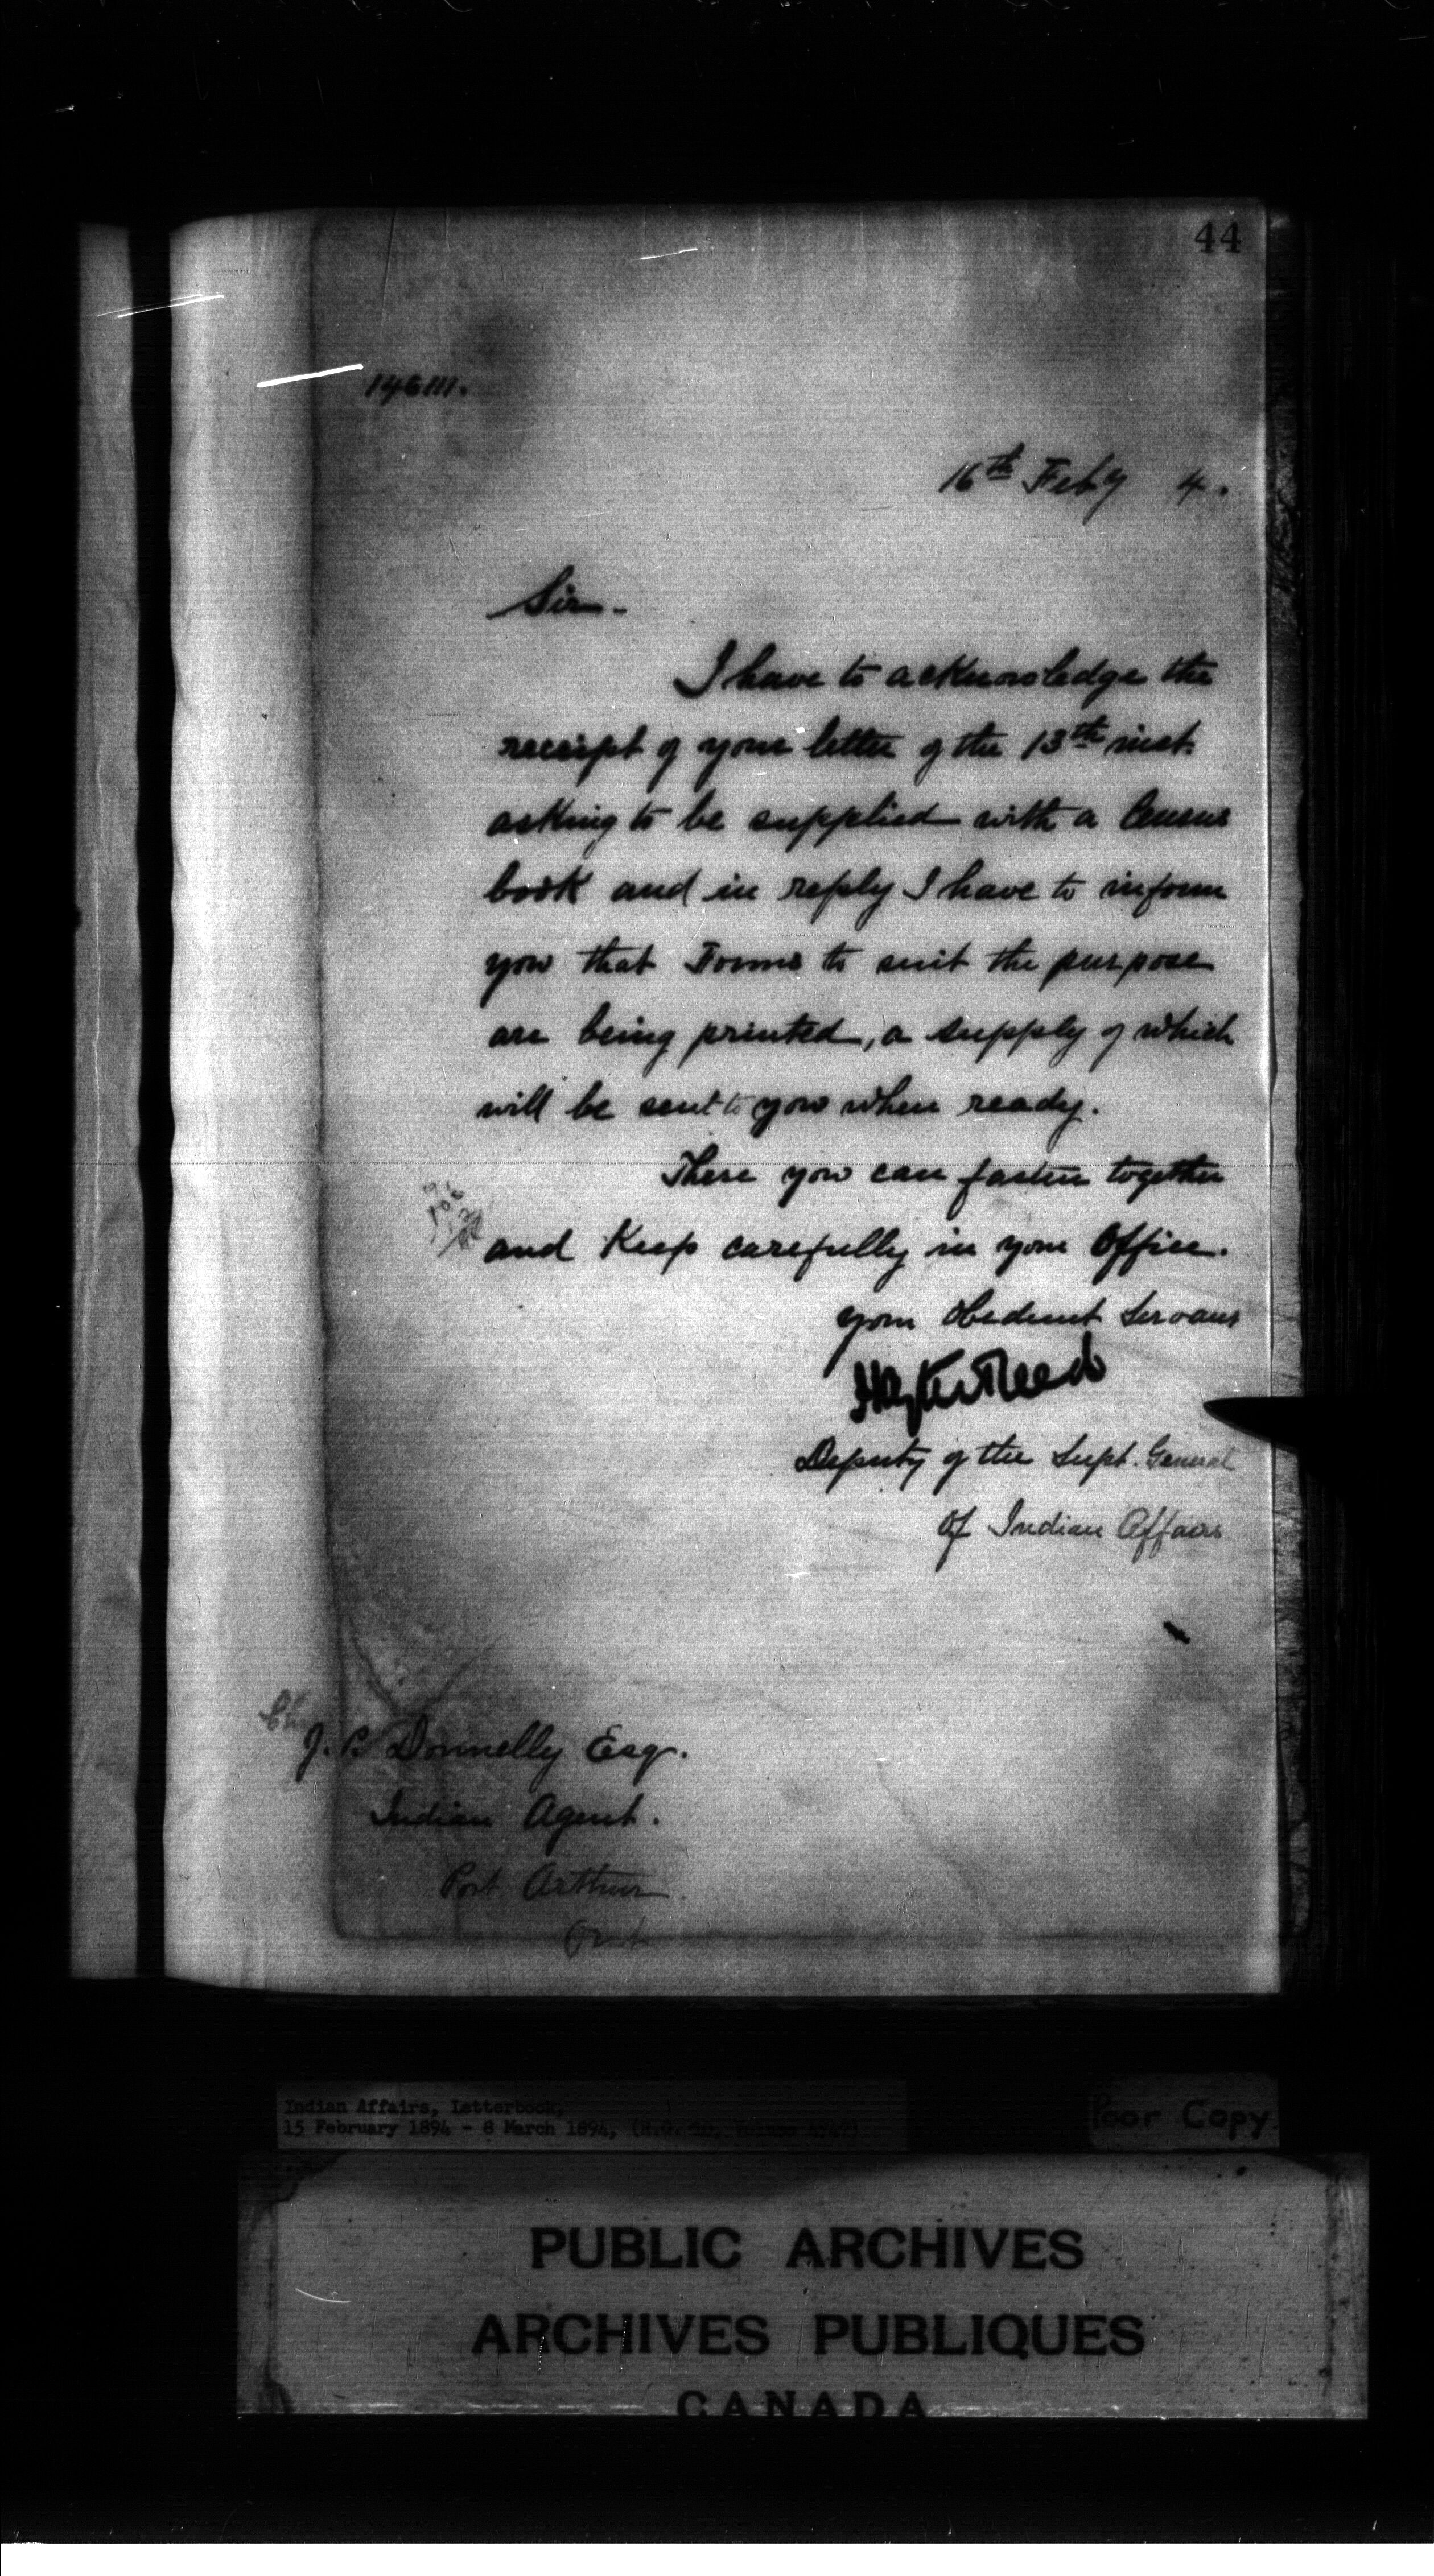 44
146111.
16th Feby 4.
Sir -
I have to acknowledge the
receipt of your letter of the 13th inst.
asking to be supplied with a Census
book and in reply I have to inform
you that Forms to suit the purpose
are being printed, a supply of which
will be sent to you when ready.
These you can fasten together
and Keep carefully in your Office.
your Obedient Servant
Hayter Reed
Deputy of the Supt. General
Of Indian Affairs
J. P. Donnelly Esqr.
Indian Agent.
Port Arthur
Ont
Indian Affairs, Letterbook,
15 February 1894 - 8 March 1894, (R.G. 10, Volume 4747)
Poor Copy.
PUBLIC ARCHIVES
ARCHIVES PUBLIQUES
CANADA